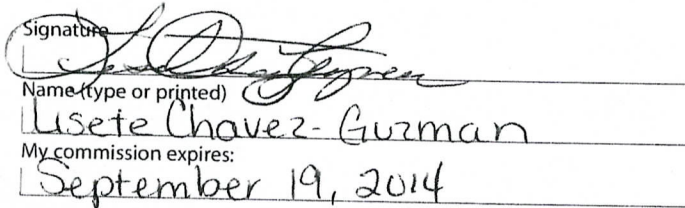 Signature
Name (type or printed)
Lisete Chavez-Guzman
My commission expires:
September 19, 2014